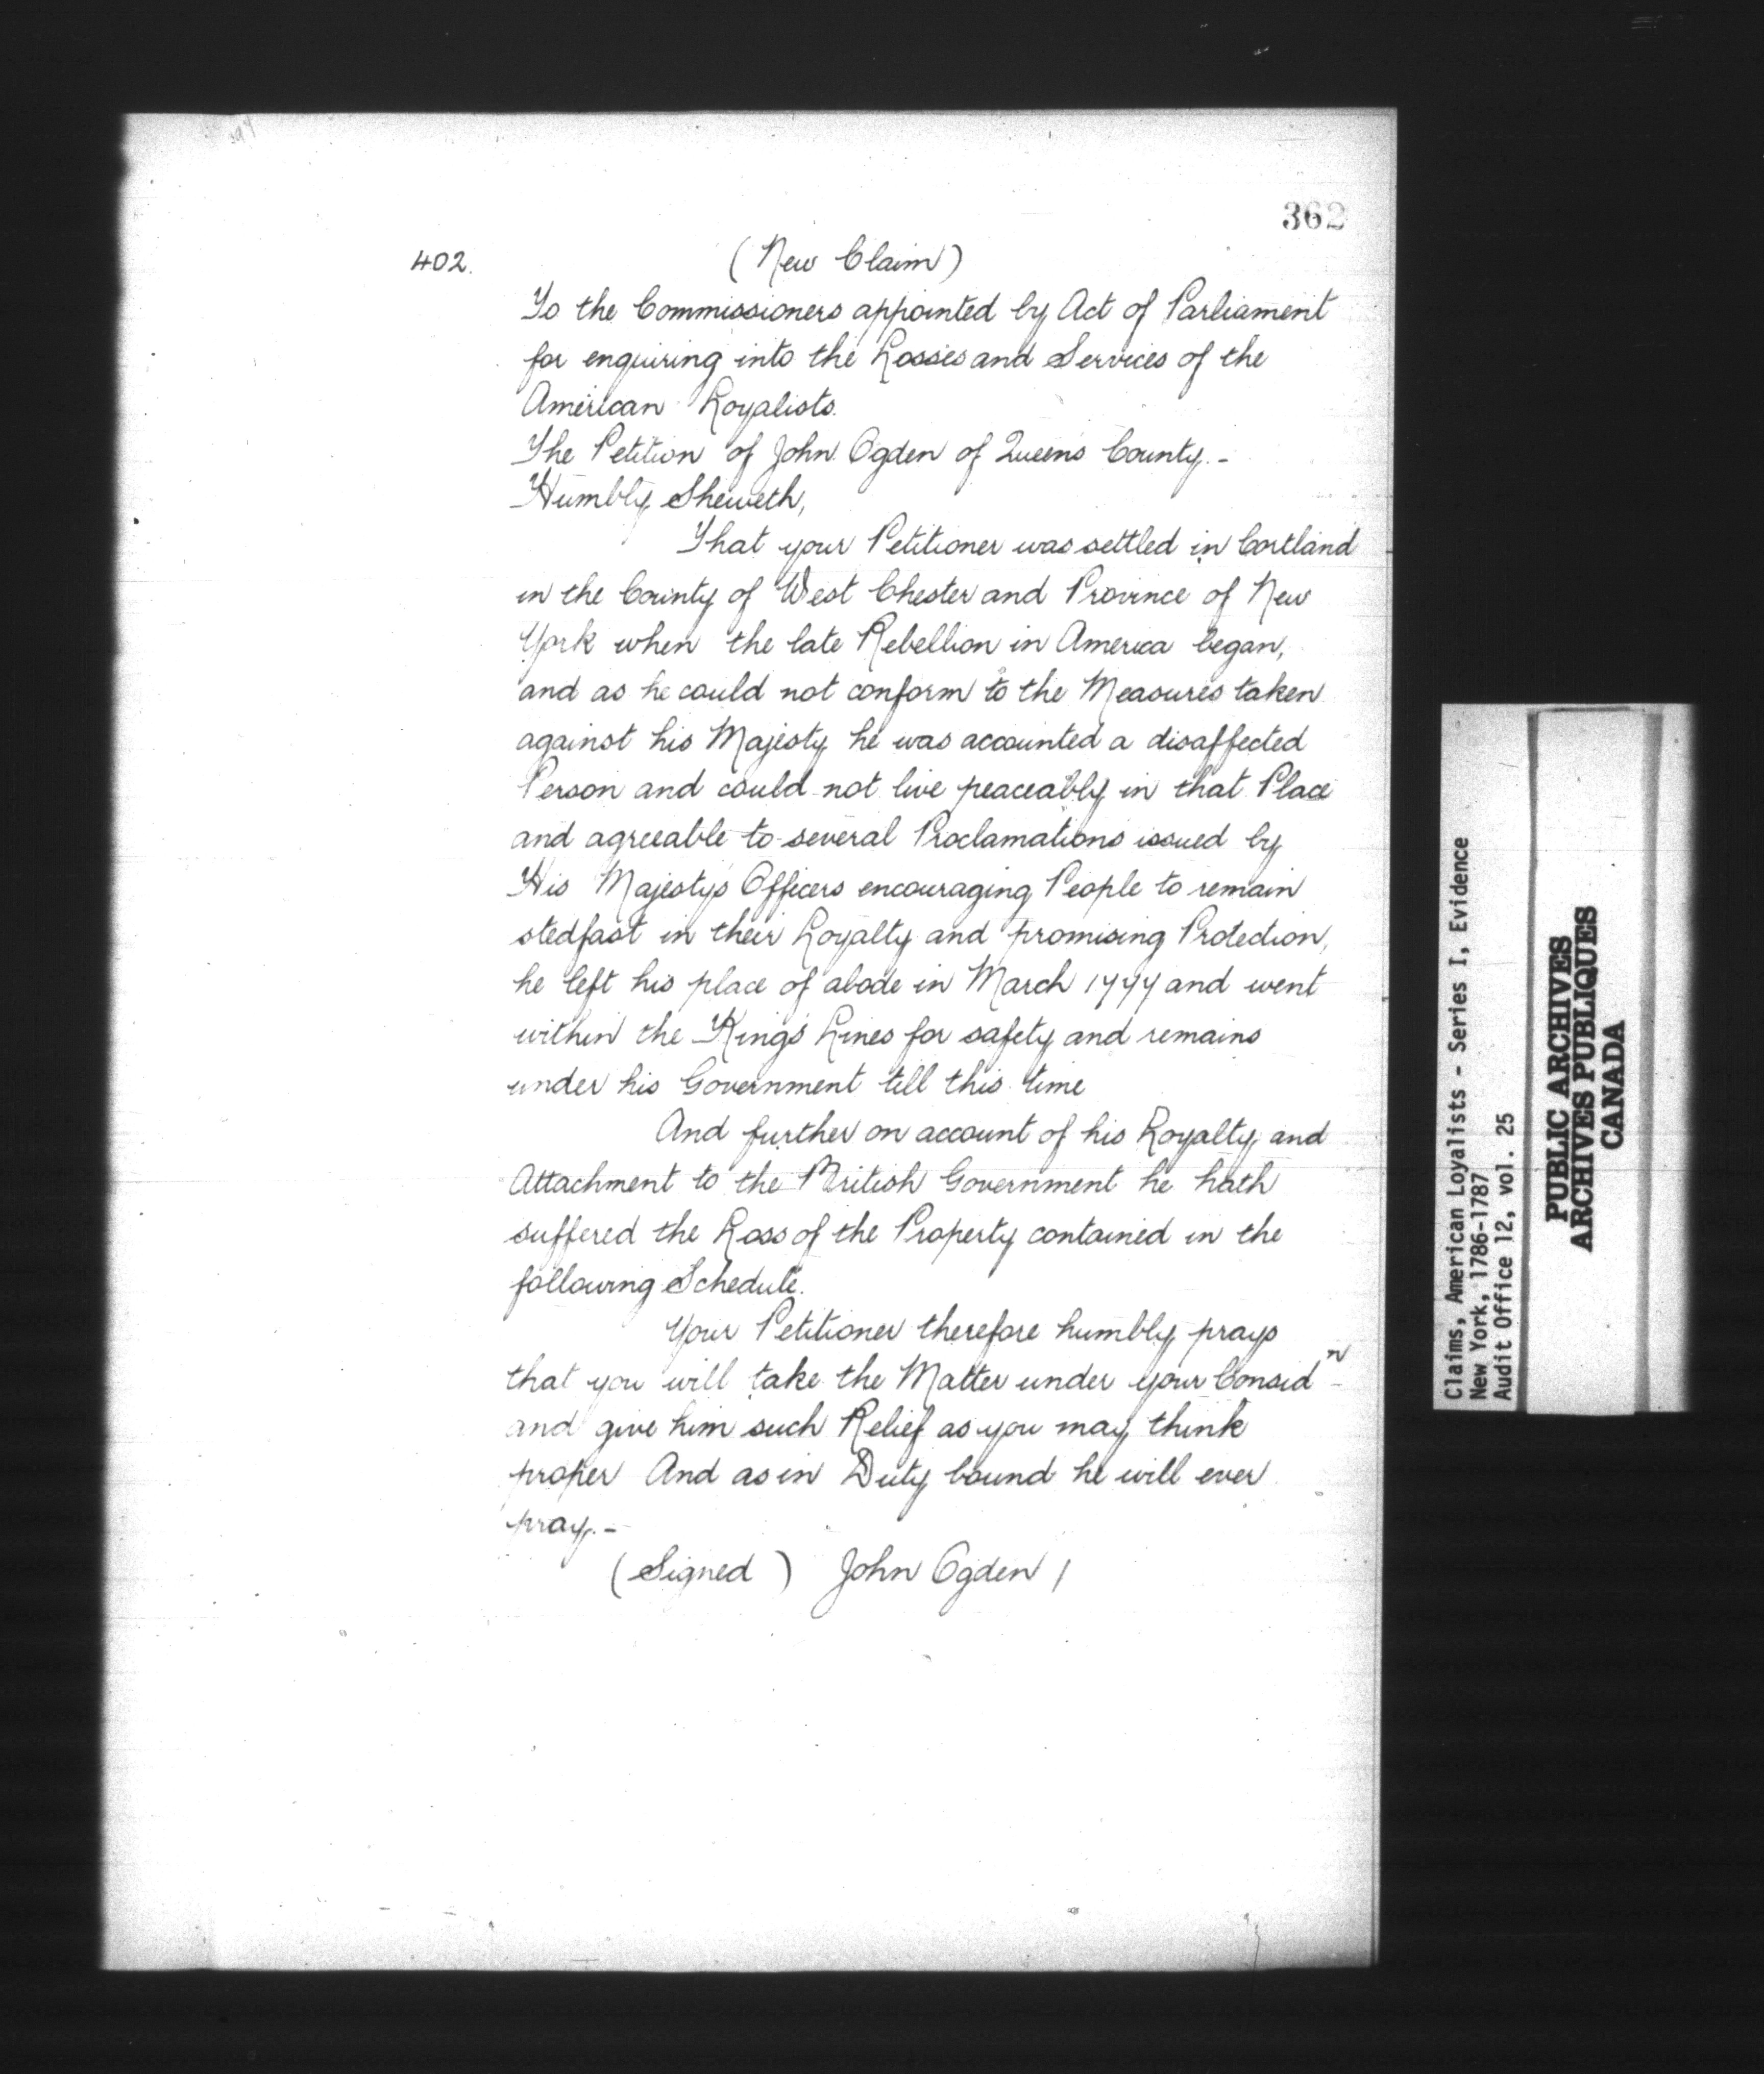 362
402.
(New Claim)
To the Commissioners appointed by Act of Parliament
for enquiring into the Losses and Services of the
American Loyalists.
The Petition of John Ogden of Queens County.-
Humbly Sheweth,
That your Petitioner was settled in Cortland
in the County of West Chester and Province of New
York when the late Rebellion in America began,
and as he could not conform to the Measures taken
against his Majesty he was accounted a disaffected
Person and could not live peaceably in that Place
and agreeable to several Proclamations issued by
His Majestys Officers encouraging People to remain
stedfast in their Loyalty and promising Protection,
he left his place of abode in March 1777 and went
within the King's Lines for safety and remains
under his Government till this time
And further on account of his Loyalty and
Attachment to the British Government he hath
suffered the Loss of the Property contained in the
following Schedule.
Your Petitioner therefore humbly prays
that you will take the Matter under your Consid^n
and give him such Relief as you may think
proper And as in Duty bound he will ever
pray.-
(Signed) John Ogden /
Claims, American Loyalists - Series I, Evidence
New York, 1786-1787
Audit Office 12, vol. 25
PUBLIC ARCHIVES
ARCHIVES PUBLIQUES
CANADA